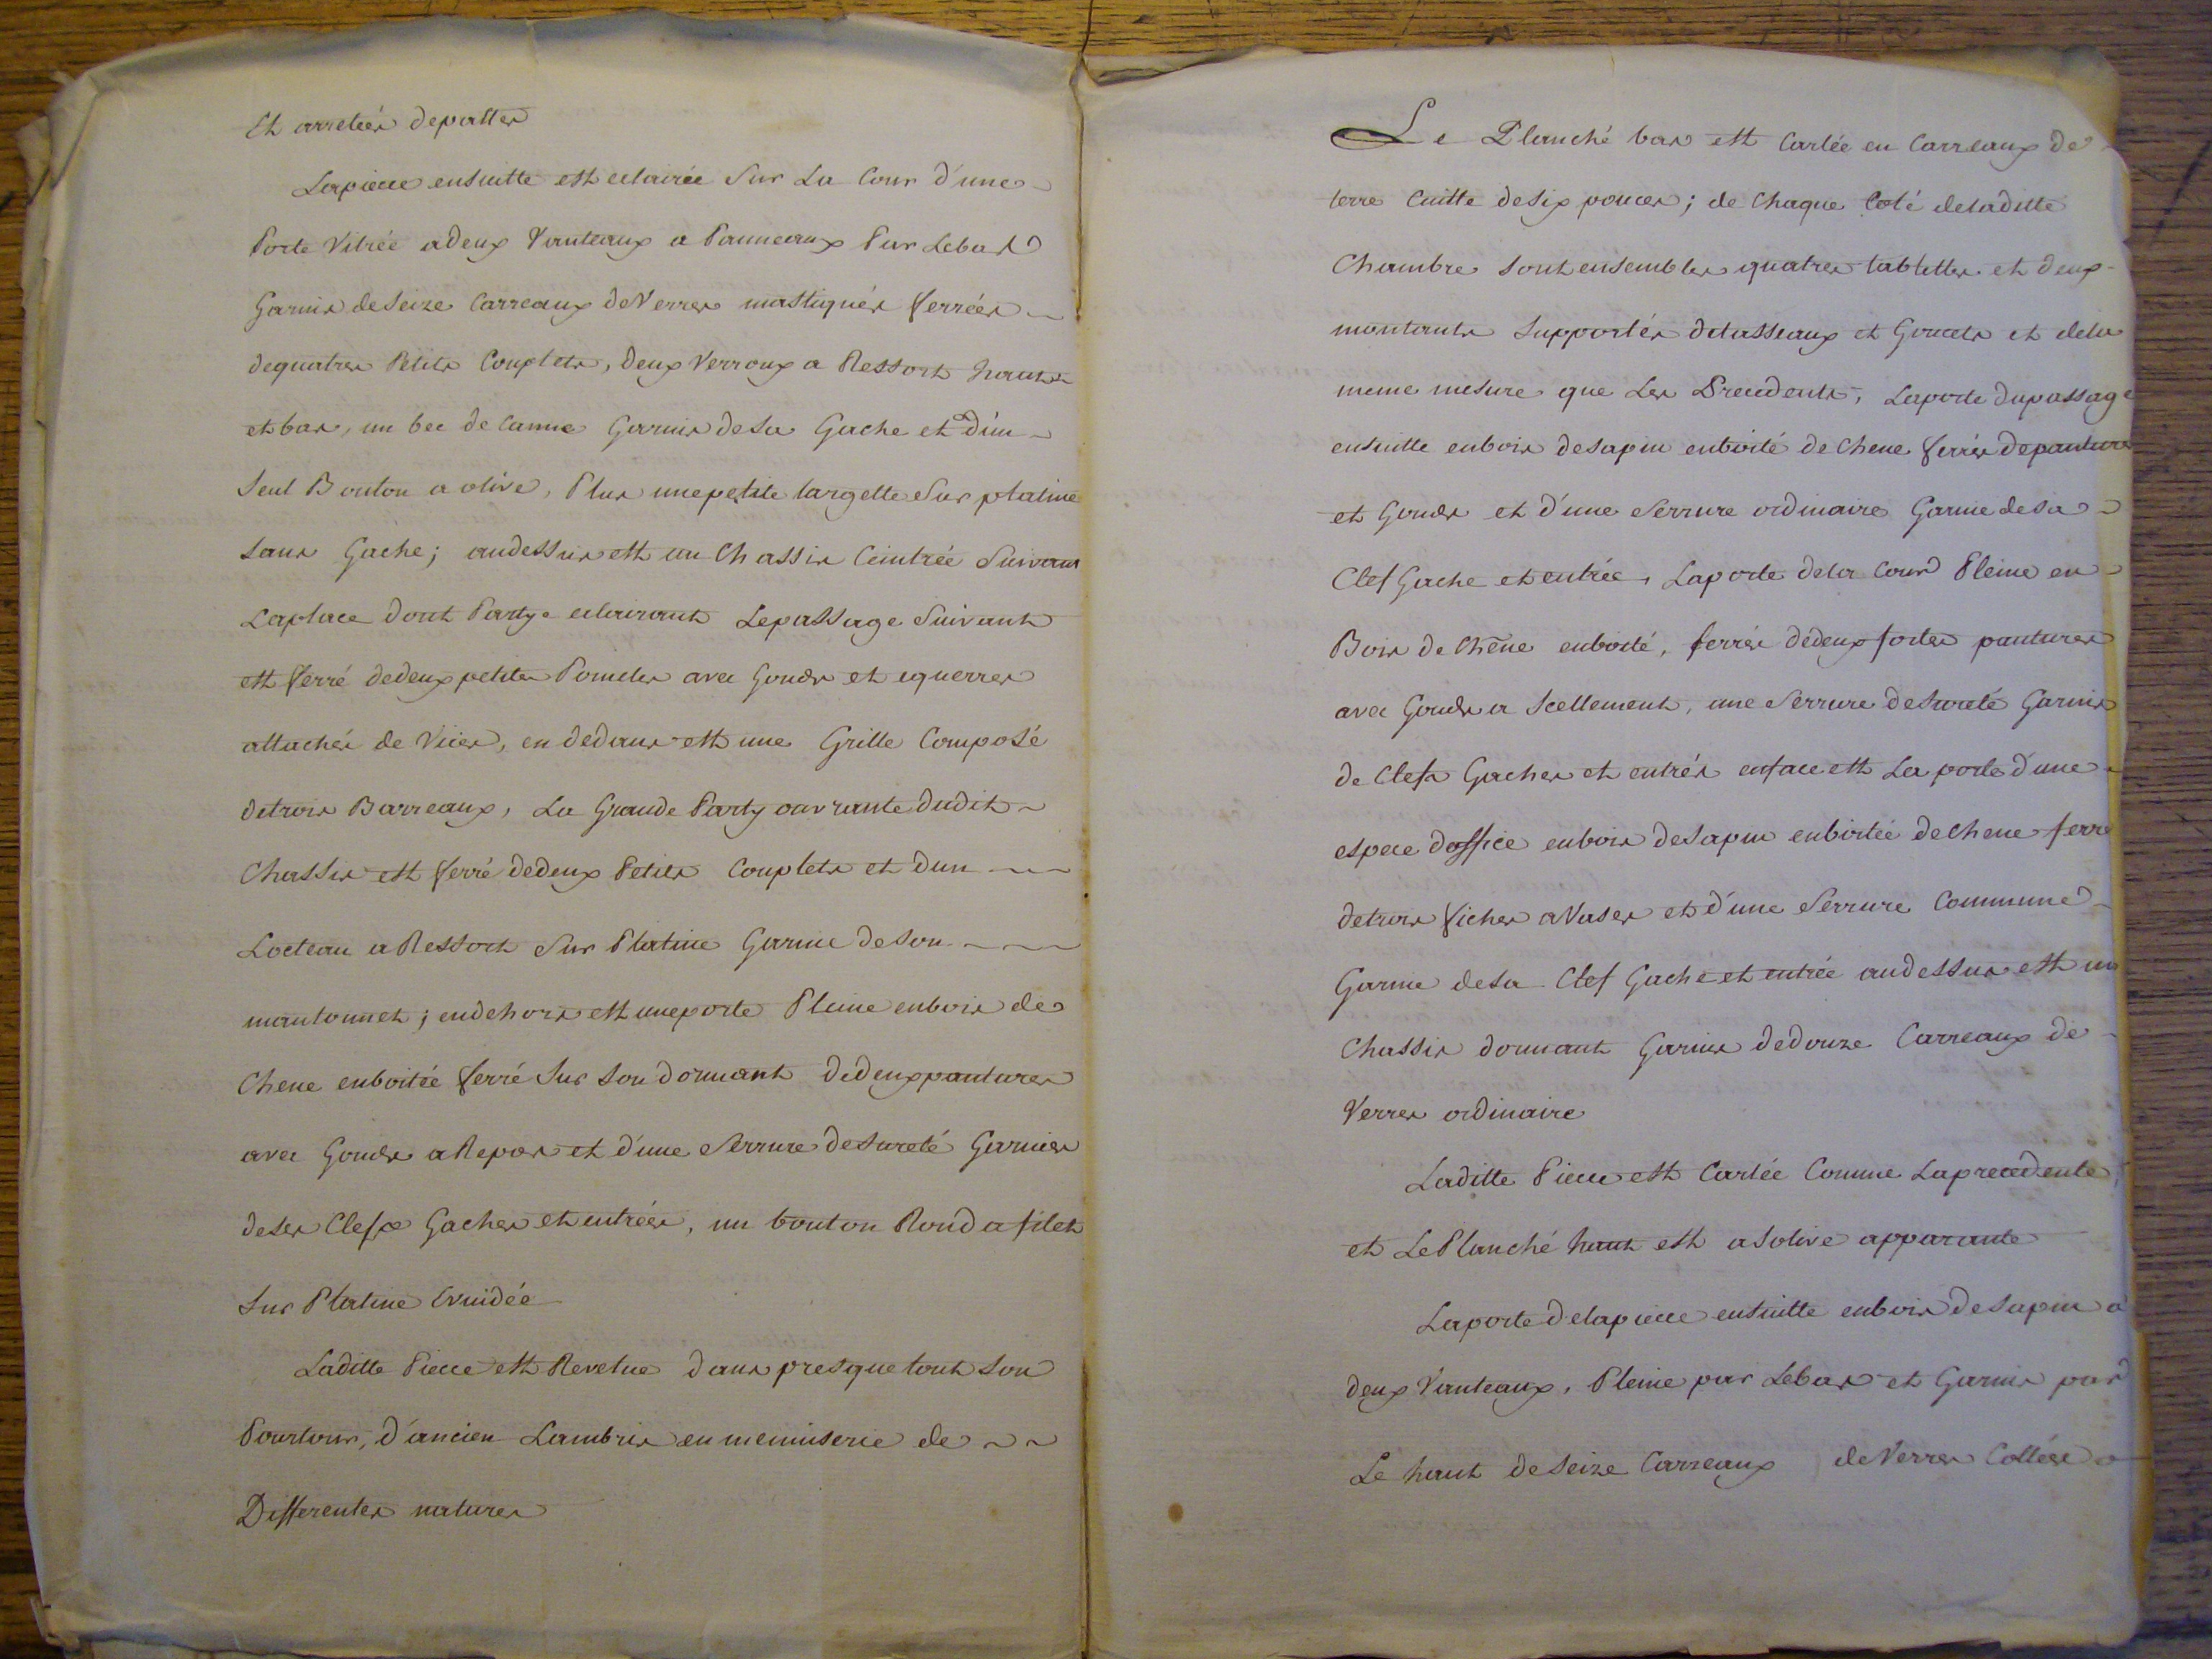 Et arretées depattes
Lapiece ensuitte est eclairée Sur La Cour d'une
Porte Vitrée adeux Vanteaux a Panneaux Par Lebas
Garnis deseize Carreaux deVerres mastiqués ferrées
dequatres Petits Couplets, deux Verroux a Ressort hauts
et bas, un bec de Canne Garnis desa Gache et d'un
Seul Bouton a olive, Plus unepetite targette Sur platine
sans Gache; audessus est un Chassis Ceintrée Suivant
Laplace dont Partye eclairant Lepassage Suivant
est ferré dedeux petites Pomelles avec Gonds et equerres
attachés de Vices, en dedans est une Grille Composé
detrois Barreaux, La Grande Party ouvrante dudit
Chassis est ferré dedeux Petits Couplets et dun
Locteau a Ressort Sur Platine Garnie deson
mantonnet; endehors est uneporte Pleine enbois de
Chene enboitée ferré Sur Son dormant dedeuxpantures
avec Gonds aRepos et d'une Serrure desureté Garnies
deses Clefs Gaches et entrées, un bouton Rond a filet
Sur Platine Evuidée
Laditte Piece est Revetue dans presque tout son
Pourtour, d'ancien Lambris en menuiserie de
Differentes natures
Le Planché bas est Carlée en Carreaux de
terre Cuitte desix pouces; de Chaque Coté deladitte
Chambre sont ensembles quatres tablettes et deux
montants Supportés detasseaux et Goucets et dela
meme mesure que Les Precedents, Laporte dupassage
ensuitte enbois desapin enboité de Chene ferrés depanture
et Gonds et d'une Serrure ordinaire Garnie desa
Clef Gache et entrée, Laporte dela Cour Pleine en
Bois de Chêne enboité, ferrés dedeux fortes pantures
avec Gonds a Scellement, une Serrure desureté Garnis
de Clefs Gaches et entrés enface est La porte d'une
espece d'office enbois deSapin enboitée deChene ferré
detrois fiches aVases et d'une Serrure Commune
Garnie desa Clef Gache et entrée audessus est un
Chassis dormant Garnis dedouze Carreaux de
Verres ordinaire
Laditte Piece est Carlée Comme Laprecedente
et LePlanché haut est aSolive apparante
Laporte delapiece ensuitte enbois deSapin a
deux Vanteaux, Pleine par Lebas et Garnis par
Le haut deseize Carreaux deVerres Collées a